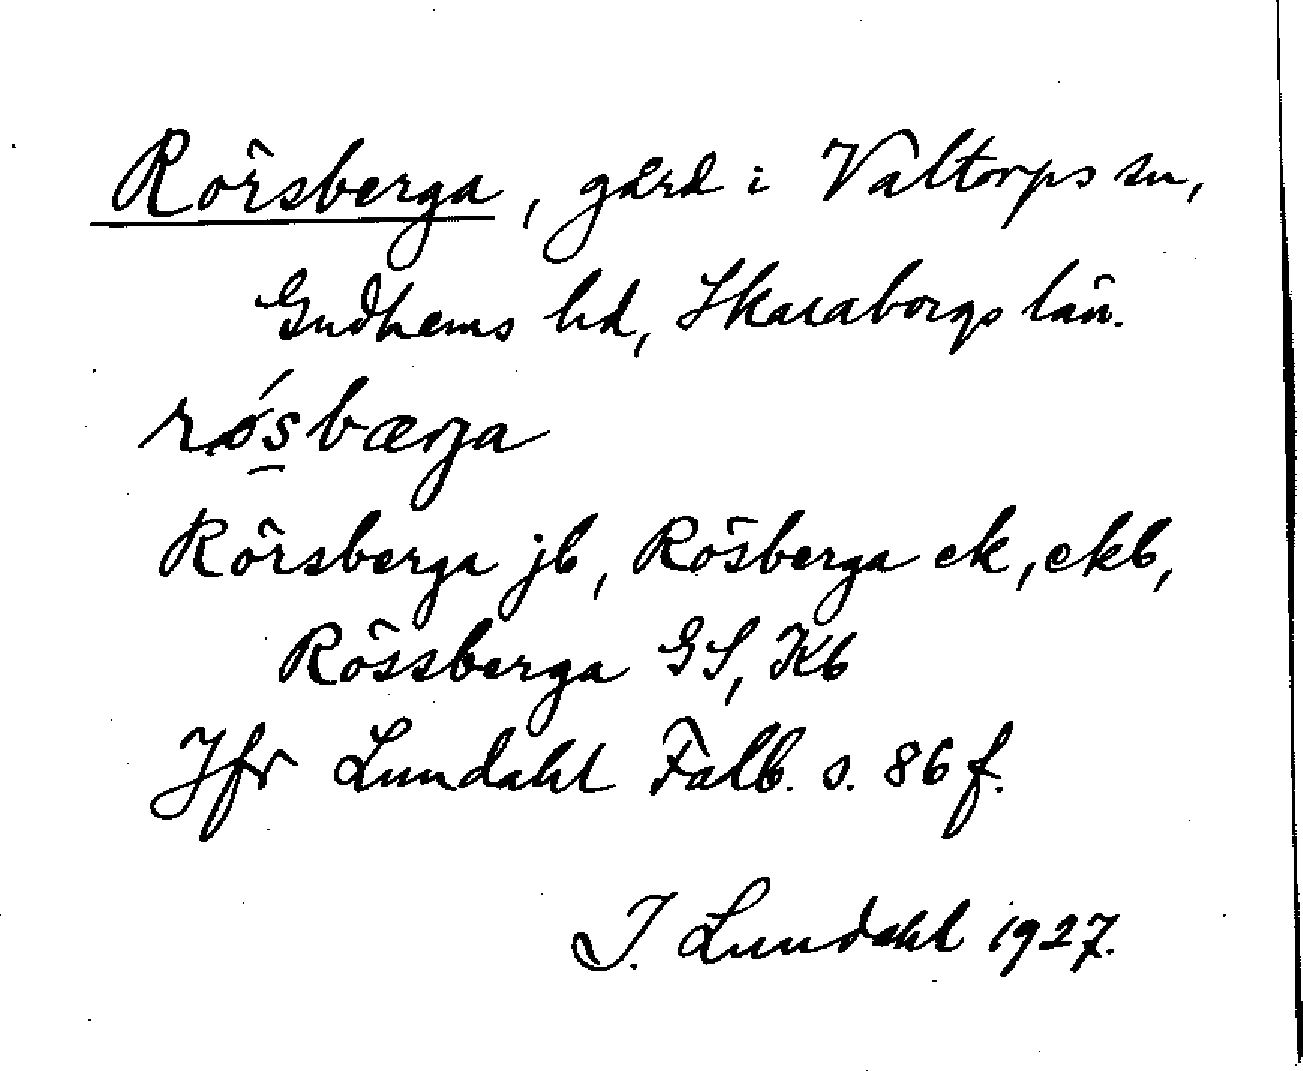 Rörsberga, gård i Valtorps sn,
Gudhems hd, Skaraborgs län.
rø´s̲bærja
Rörsberga jb, Rösberga ek, ekb,
Rössberga GS, Kb
Jfr Lundahl Falb. s. 86 f.
I. Lundahl 1927.